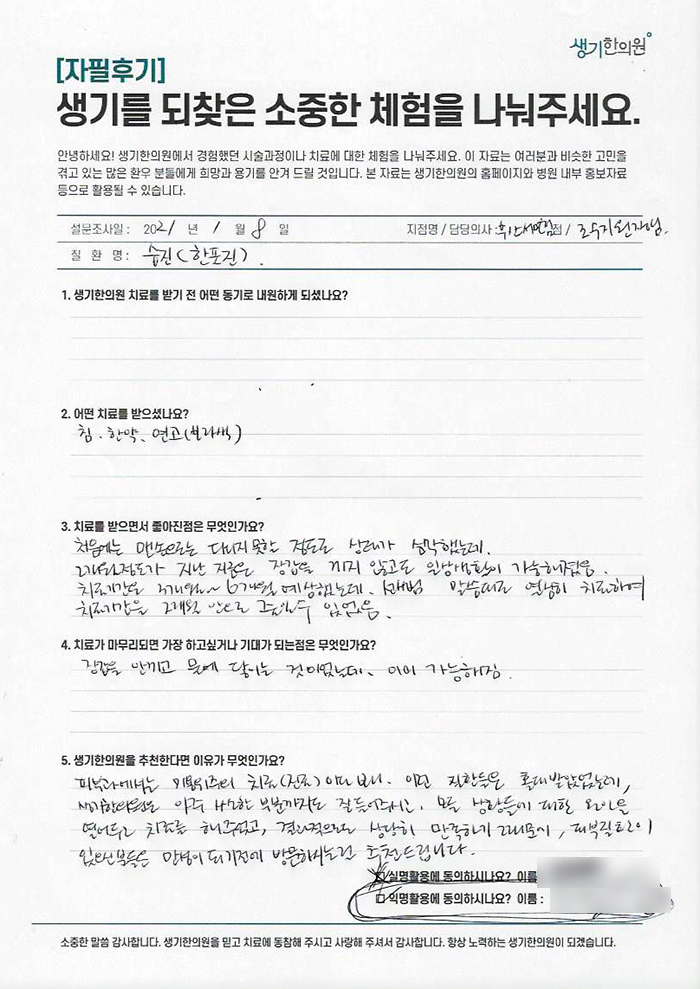 생기한의원
[자필후기]
생기를 되찾은 소중한 체험을 나눠주세요.
안녕하세요! 생기한의원에서 경험했던 시술과정이나 치료에 대한 체험을 나눠주세요. 이 자료는 여러분과 비슷한 고민을
겪고 있는 많은 환우 분들에게 희망과 용기를 안겨 드릴 것입니다. 본 자료는 생기한의원의 홈페이지와 병원 내부 홍보자료
등으로 활용될 수 있습니다.
설문조사일 : 2021 년 1 월 8 일 지점명 / 담당의사 : 부산서면점 / 조수지원장님.
질 환 명 : 습진(한포진).
1. 생기한의원 치료를 받기 전 어떤 동기로 내원하게 되셨나요?
2. 어떤 치료를 받으셨나요?
침. 한약. 연고(보라색)
3. 치료를 받으면서 좋아진점은 무엇인가요?
처음에는 맨손으로는 다니지 못할 정도로 상태가 심각했는데.
2개월정도가 지난 지금은 장갑을 끼지 않고도 일상생활이 가능해졌음.
치료기간은 3개월~6개월 예상했는데. 선생님 말씀대로 열심히 치료하여
치료기간을 2개월 안으로 줄일수 있었음.
4. 치료가 마무리되면 가장 하고싶거나 기대가 되는점은 무엇인가요?
장갑을 안끼고 물에 닿이는 것이었는데. 이미 가능해짐.
5. 생기한의원을 추천한다면 이유가 무엇인가요?
피부과에서는 치료(진료)이다 보니. 이런 질환들은 홀대받았었는데,
생기한의원은 아주 사소한 부분까지도 잘들어주시고. 모든 상황들에 대한
열어두고 치료를 해주셨고, 결과적으로 상당히 만족하기 때문에, 피부질환이
있으신분들은 만성이 되기전에 방문하시는걸 추천드립니다.
실명활용에 동의하시나요? 이름
익명활용에 동의하시나요? 이름 :
소중한 말씀 감사합니다. 생기한의원을 믿고 치료에 동참해 주시고 사랑해 주셔서 감사합니다. 항상 노력하는 생기한의원이 되겠습니다.